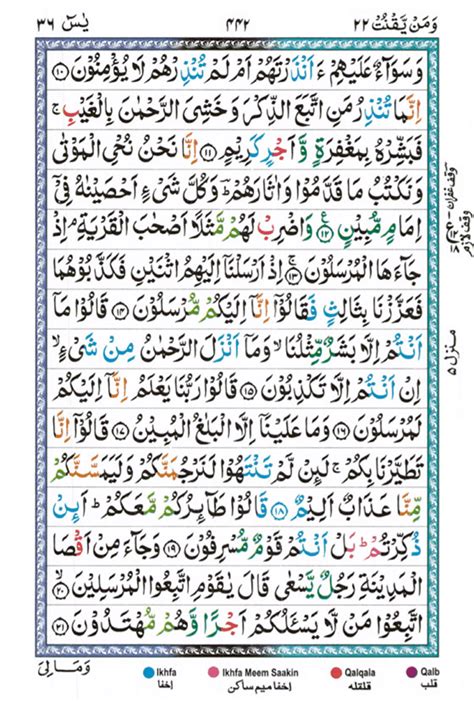 وَمَنْ يَّقْنُتْ ٢٢
٤٤٢
يٰسٓ ٣٦
وَسَوَآءٌ عَلَيْهِمْ ءَاَنْذَرْتَهُمْ اَمْ لَمْ تُنْذِرْهُمْ لَا يُؤْمِنُوْنَ ۝١٠
اِنَّمَا تُنْذِرُ مَنِ اتَّبَعَ الذِّكْرَ وَخَشِيَ الرَّحْمٰنَ بِالْغَيْبِ ۚ
فَبَشِّرْهُ بِمَغْفِرَةٍ وَّاَجْرٍ كَرِيْمٍ ۝١١ اِنَّا نَحْنُ نُحْيِ الْمَوْتٰى
وَنَكْتُبُ مَا قَدَّمُوْا وَاٰثَارَهُمْ ؕ وَكُلَّ شَيْءٍ اَحْصَيْنٰهُ فِيْٓ
اِمَامٍ مُّبِيْنٍ ۝١٢ وَاضْرِبْ لَهُمْ مَّثَلًا اَصْحٰبَ الْقَرْيَةِ ۘ اِذْ
جَآءَهَا الْمُرْسَلُوْنَ ۝١٣ اِذْ اَرْسَلْنَآ اِلَيْهِمُ اثْنَيْنِ فَكَذَّبُوْهُمَا
فَعَزَّزْنَا بِثَالِثٍ فَقَالُوْٓا اِنَّآ اِلَيْكُمْ مُّرْسَلُوْنَ ۝١٤ قَالُوْا مَآ
اَنْتُمْ اِلَّا بَشَرٌ مِّثْلُنَا ۙ وَمَآ اَنْزَلَ الرَّحْمٰنُ مِنْ شَيْءٍ ۙ
اِنْ اَنْتُمْ اِلَّا تَكْذِبُوْنَ ۝١٥ قَالُوْا رَبُّنَا يَعْلَمُ اِنَّآ اِلَيْكُمْ
لَمُرْسَلُوْنَ ۝١٦ وَمَا عَلَيْنَآ اِلَّا الْبَلٰغُ الْمُبِيْنُ ۝١٧ قَالُوْٓا اِنَّا
تَطَيَّرْنَا بِكُمْ ۚ لَئِنْ لَّمْ تَنْتَهُوْا لَنَرْجُمَنَّكُمْ وَلَيَمَسَّنَّكُمْ
مِّنَّا عَذَابٌ اَلِيْمٌ ۝١٨ قَالُوْا طَآئِرُكُمْ مَّعَكُمْ ؕ اَئِنْ
ذُكِّرْتُمْ ؕ بَلْ اَنْتُمْ قَوْمٌ مُّسْرِفُوْنَ ۝١٩ وَجَآءَ مِنْ اَقْصَا
الْمَدِيْنَةِ رَجُلٌ يَّسْعٰى قَالَ يٰقَوْمِ اتَّبِعُوا الْمُرْسَلِيْنَ ۝٢٠
اتَّبِعُوْا مَنْ لَّا يَسْئَلُكُمْ اَجْرًا وَّهُمْ مُّهْتَدُوْنَ ۝٢١
وقف غفران
وقف لازم
منزل ٥
وَمَا لِيَ
Ikhfa
اخفا
Ikhfa Meem Saakin
اخفا ميم ساكن
Qalqala
قلقله
Qalb
قلب